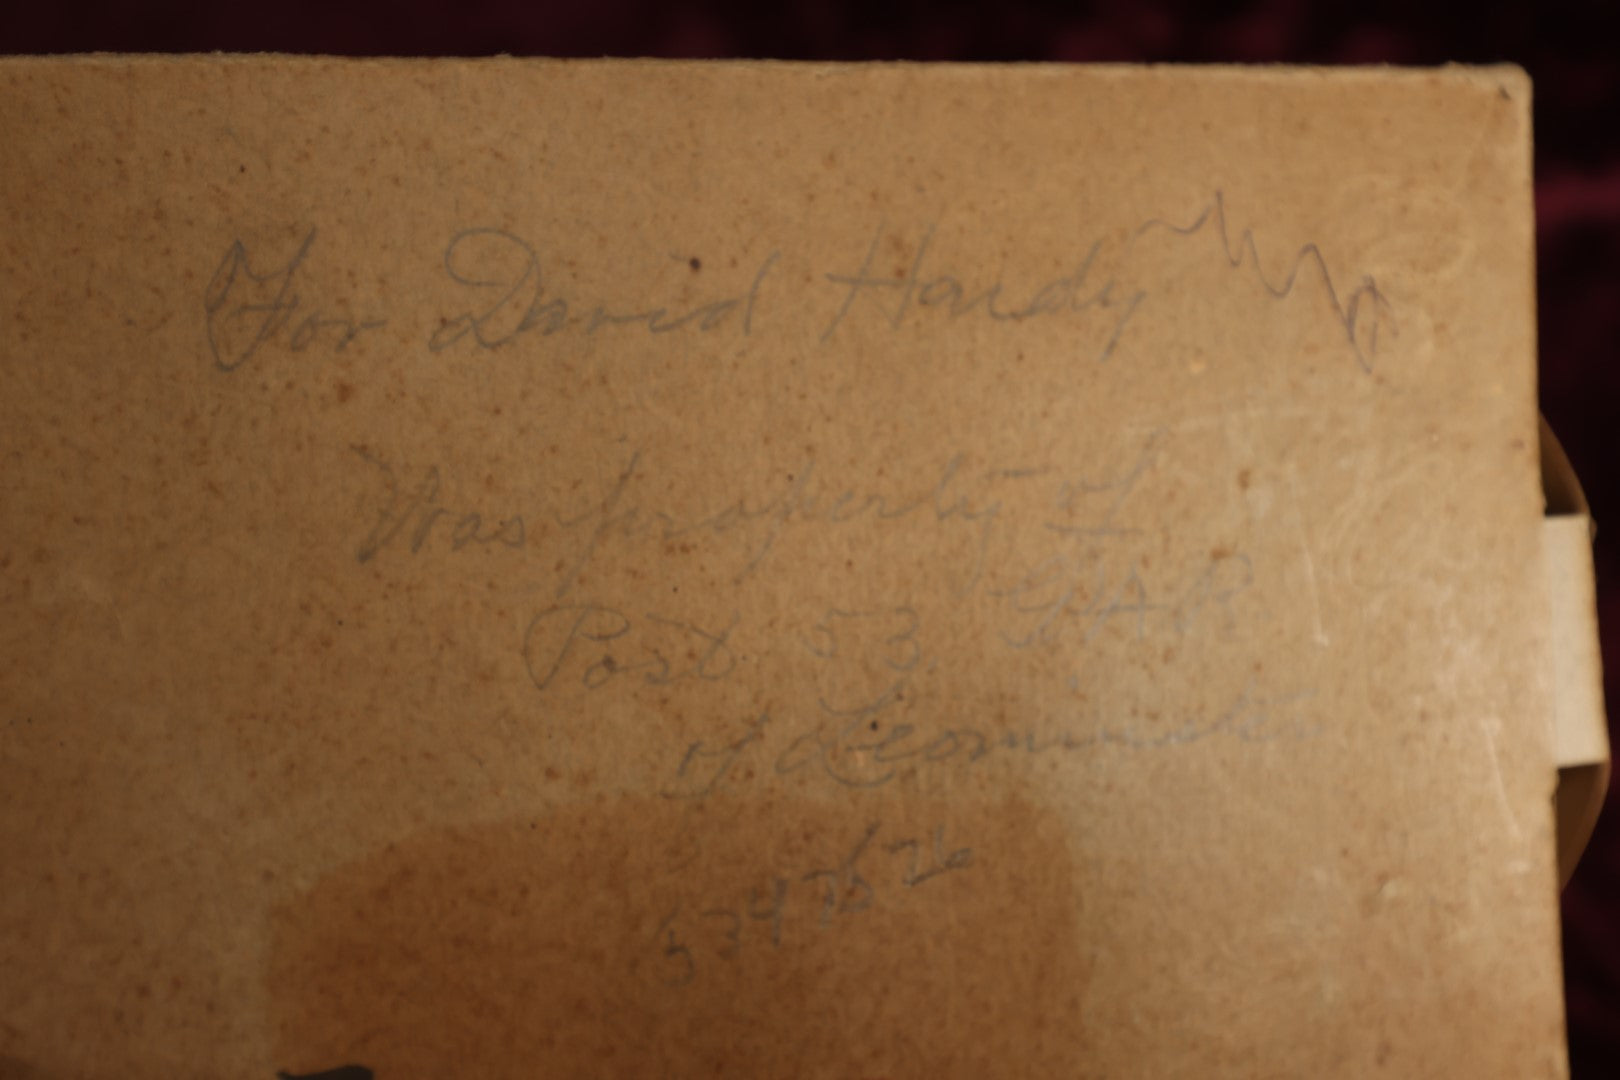 For David Hardy
Was property of
Post 53 G.A.R.
of Leominster